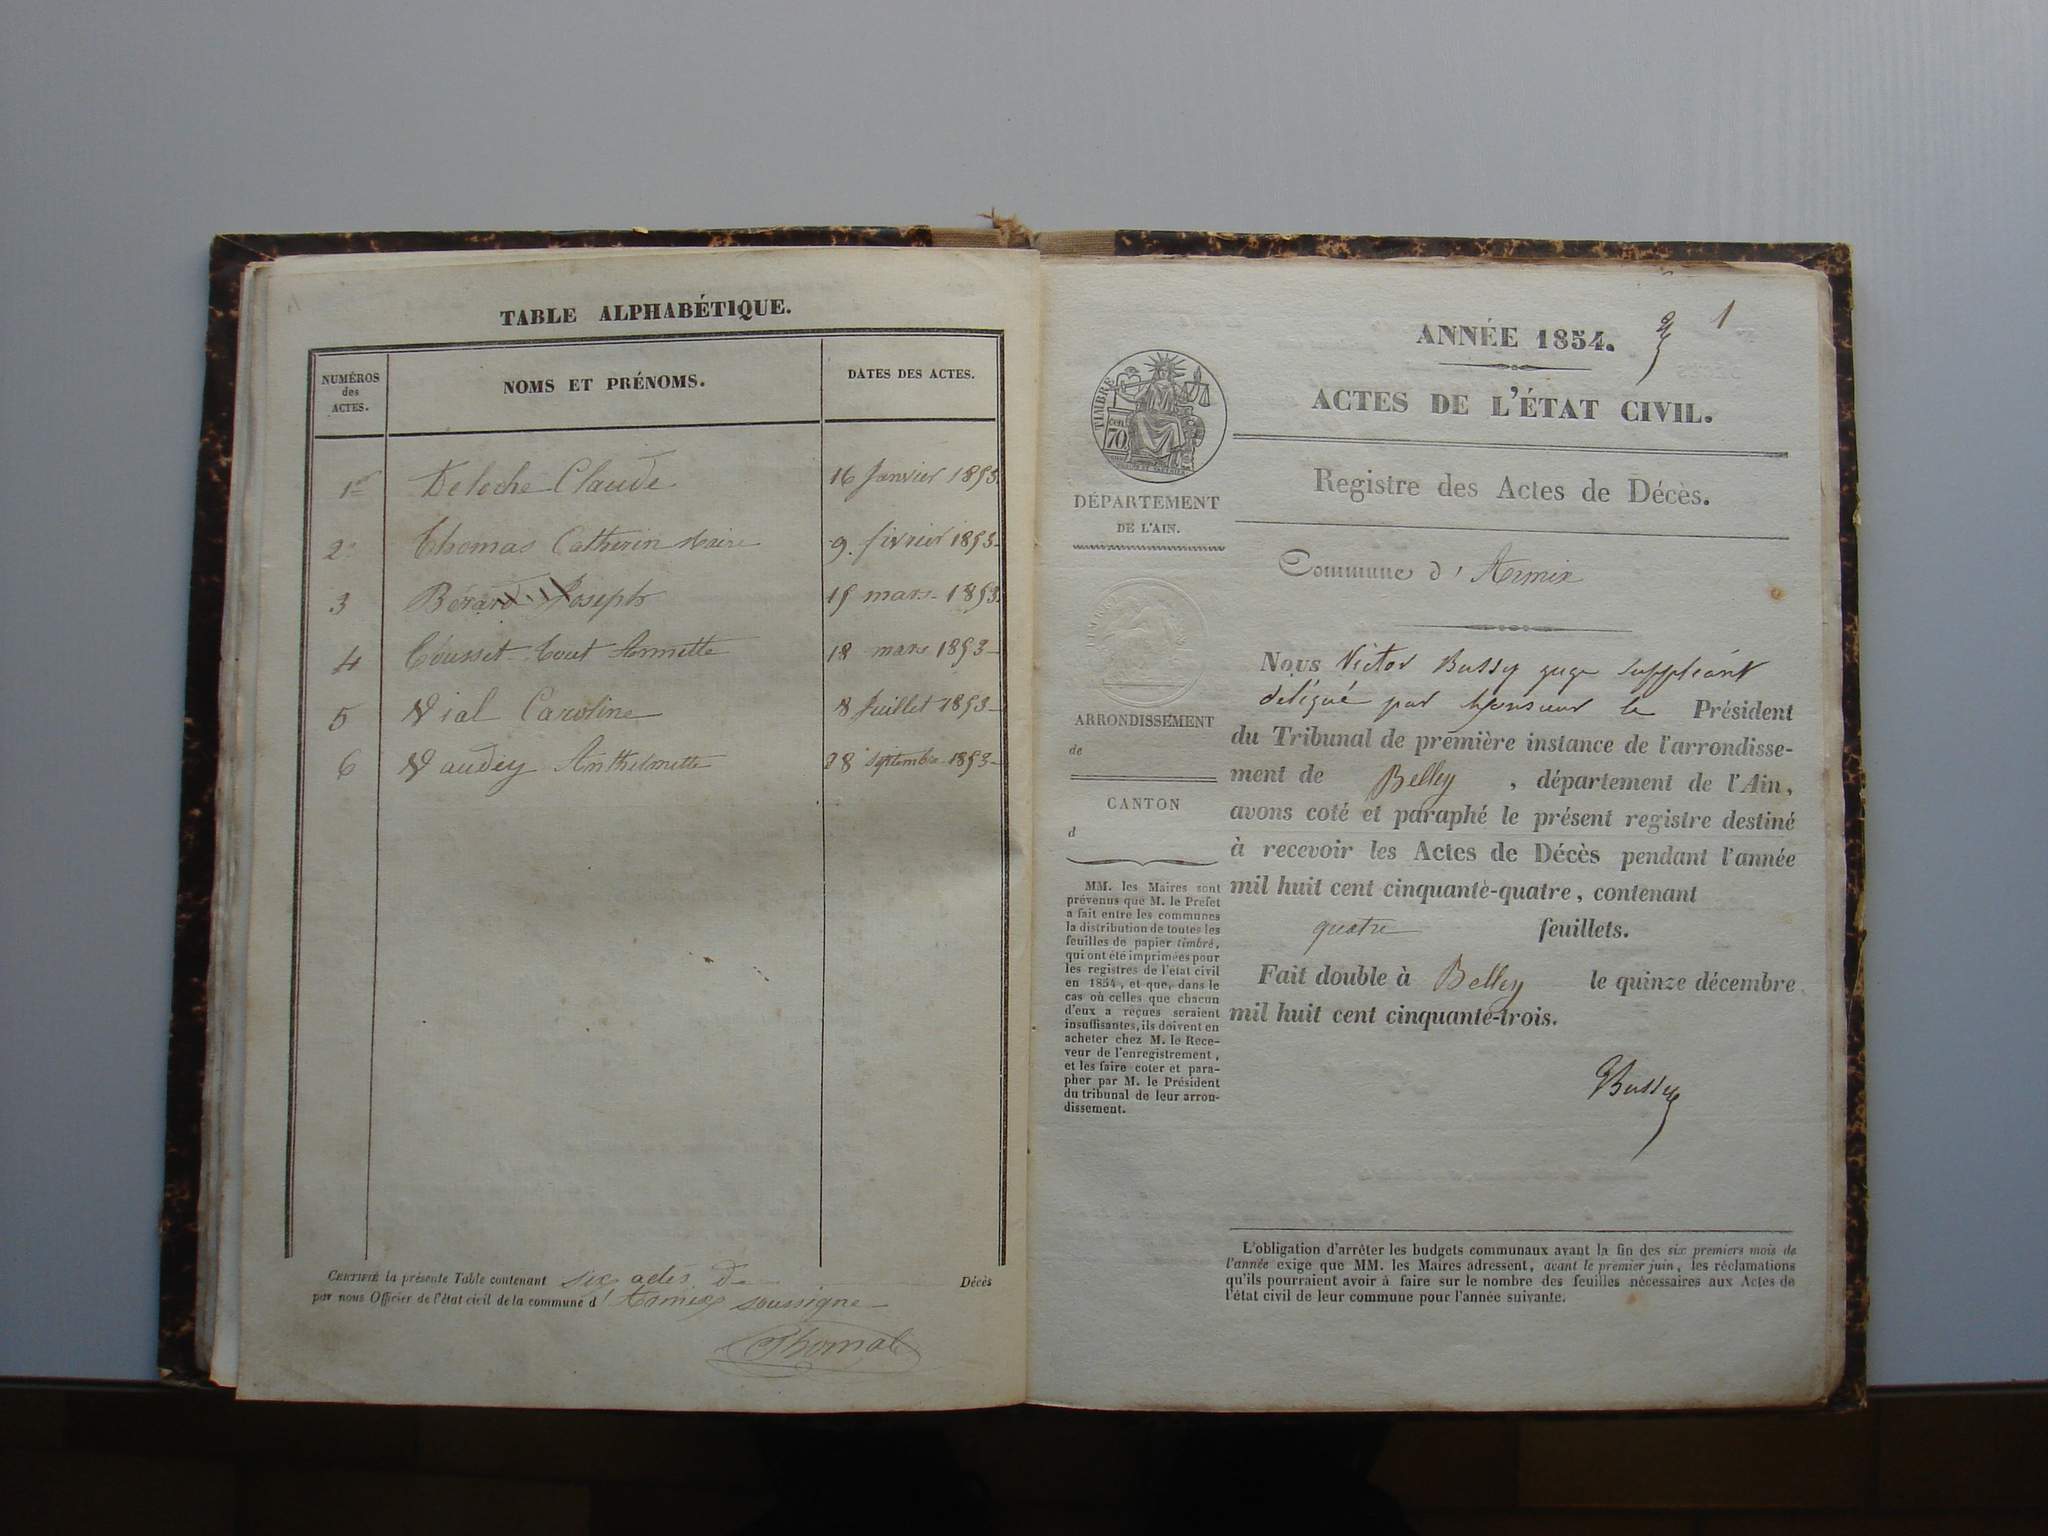 TABLE ALPHABÉTIQUE.
NUMÉROS
des
ACTES.
NOMS ET PRÉNOMS.
DATES DES ACTES.
1er Deloche Claude 16 Janvier 1853
2e Thomas Catherin Marie 9 fivrier 1853
3 Bérard Joseph 15 mars 1853
4 Annette 18 mars 1853
5 Vial Caroline 8 Juillet 1853
6 Vaudey Anthelmette 28 septembre 1853
CERTIFIÉ la présente Table contenant six actes de Décès
par nous Officier de l'état civil de la commune d' Armix soussigne
Thomas
1
ANNÉE 1854.
ACTES DE L'ÉTAT CIVIL.
Registre des Actes de Décès.
Commune d' Armix
TIMBRE
cen
70
DÉPARTEMENT
DE L'AIN.
ARRONDISSEMENT
de
CANTON
d
MM. les Maires sont
prévenus que M. le Prefet
a fait entre les communes
la distribution de toutes les
feuilles de papier timbré,
qui ont été imprimées pour
les registres de l'état civil
en 1854, et que, dans le
cas où celles que chacun
d'eux a reçues seraient
insuffisantes, ils doivent en
acheter chez M. le Rece-
veur de l'enregistrement,
et les faire coter et para-
pher par M. le Président
du tribunal de leur arron-
dissement.
Nous Victor Bussy juge suppléant
délégué par Monsieur le Président
du Tribunal de première instance de l'arrondisse-
ment de Belley, département de l'Ain,
avons coté et paraphé le présent registre destiné
à recevoir les Actes de Décès pendant l'année
mil huit cent cinquante-quatre, contenant
quatre feuillets.
Fait double à Belley le quinze décembre
mil huit cent cinquante-trois.
Bussy
L'obligation d'arrêter les budgets communaux avant la fin des six premiers mois de
l'année exige que MM. les Maires adressent, avant le premier juin, les réclamations
qu'ils pourraient avoir à faire sur le nombre des feuilles nécessaires aux Actes de
l'état civil de leur commune pour l'année suivante.